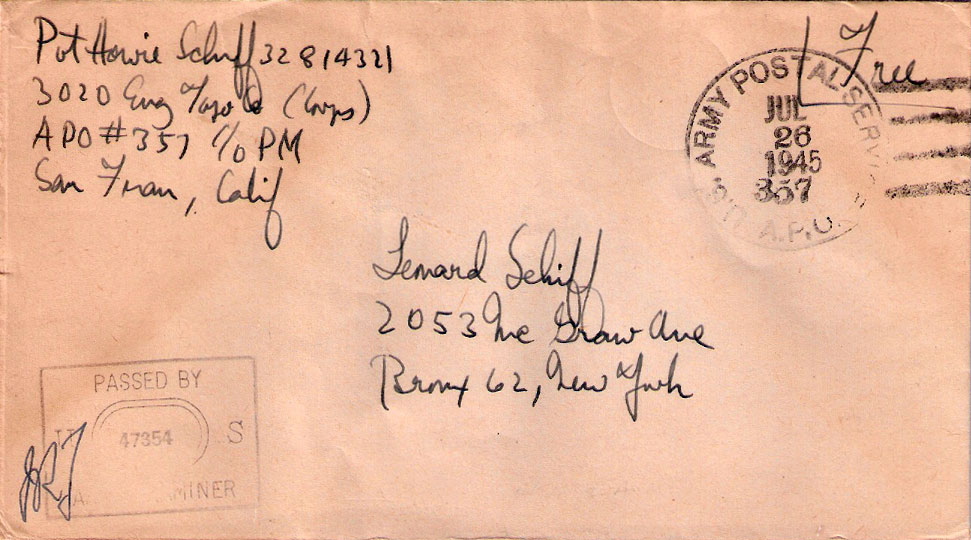 Pvt Howie Schiff 32814321
3020 Eng Topo Co (Corps)
APO #357 c/o PM
San Fran, Calif
Free
ARMY POSTAL SERVI
JUL
26
1945
357
A.P.O.
Lenard Schiff
2053 Mc Graw Ave
Bronx 62, New York
PASSED BY
47354
S
MINER